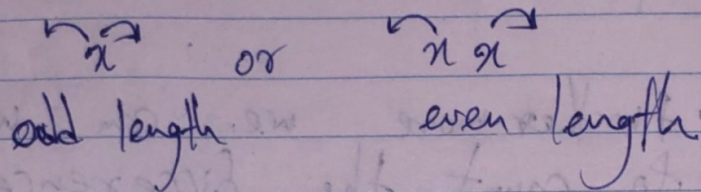 x or x x
odd length even length